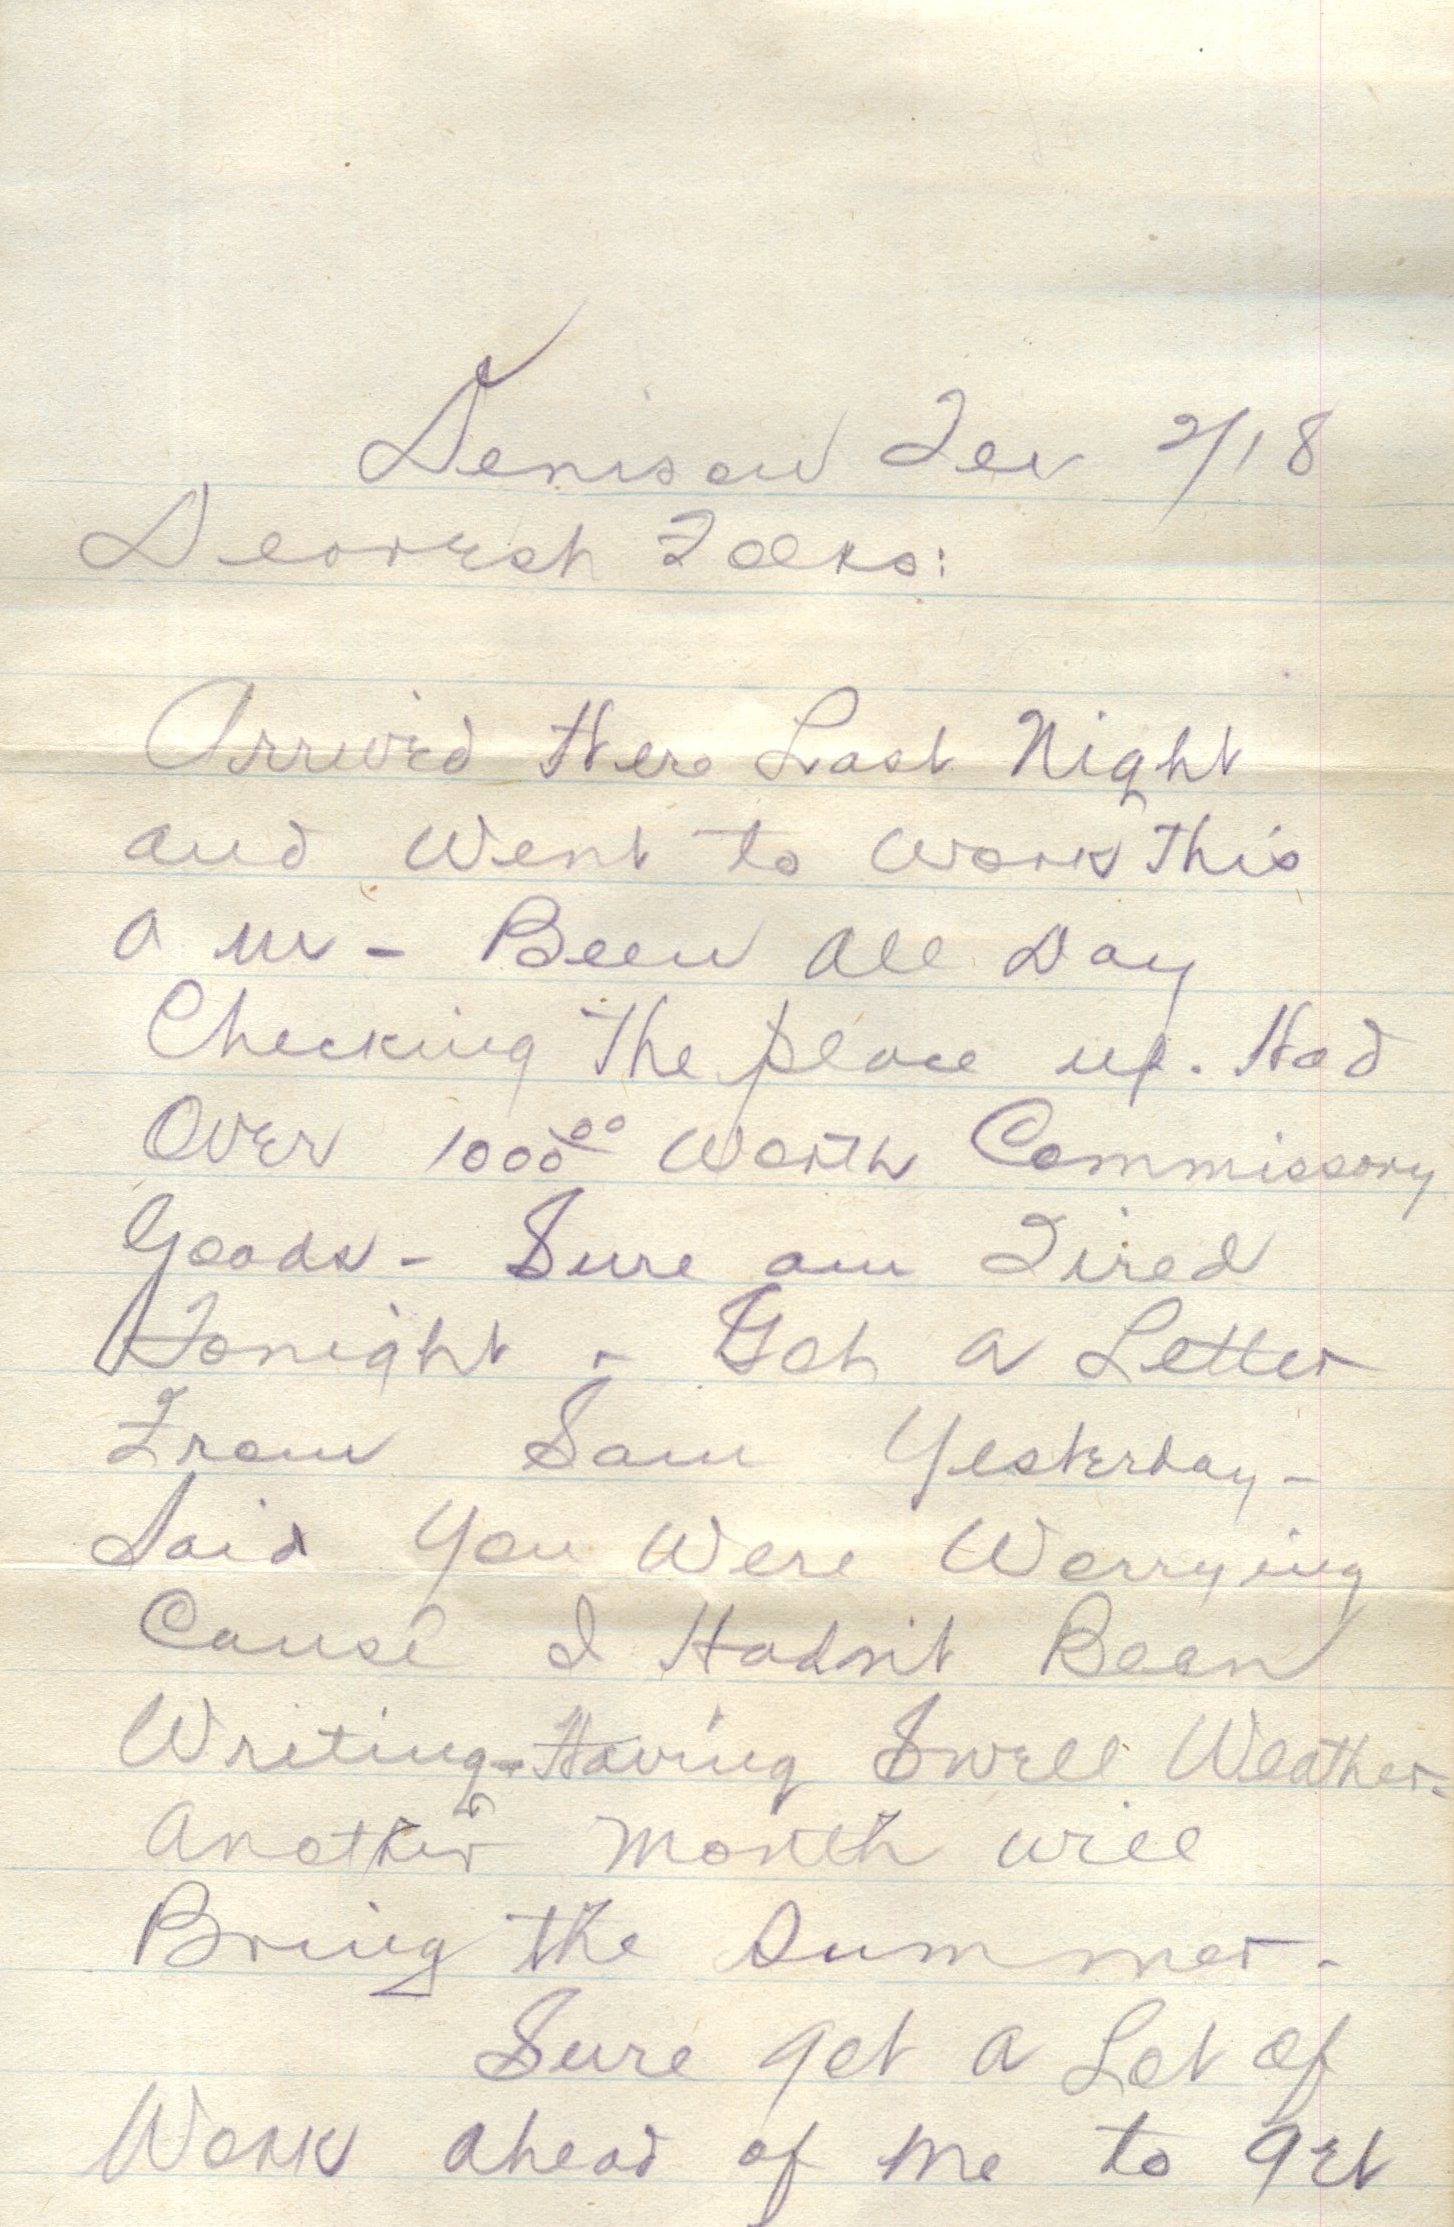 Denison Tex 2/18
Dearest Folks:
Arrived Here Last Night
and Went to Work This
a m - Been all Day
Checking The place up. Had
Over 1000.00 Worth Commissary
Goods - Sure am Tired
Tonight - Got a Letter
From Sam Yesterday -
Said You Were Worrying
Cause I Hadn't Been
Writing - Having Swell Weather -
Another Month will
Bring the Summer -
Sure got a Lot of
Work ahead of Me to get